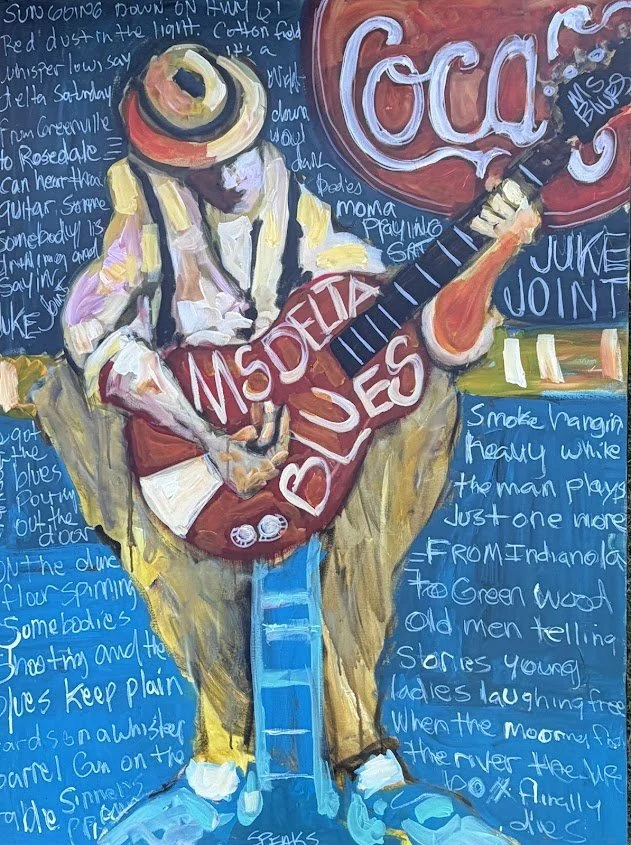 SUN GOING DOWN ON HWY 61
Red dust in the light. Cotton field
whisper low, say it's a
Delta Saturday Night
from Greenville down
to Rosedale
can hear that
guitar. Some
somebody is
and
sayin
JUKE Joint
bodies
moma
PlAYING
Coca
MS
BLUES
JUKE
JOINT
MS DELTA
BLUES
got
the
blues
Pourin
out the
door
ON the dance
floor spinning
Somebodies
Shooting and the
blues keep plain
cards on a whisker
barrel Gun on the
table Sinners
Smoke hangin
heavy while
the man plays
Just one more
FROM Indianola
to Green wood
old men telling
stories young
ladies laughing free
When the
the river the
box finally
dies
SPEAKS